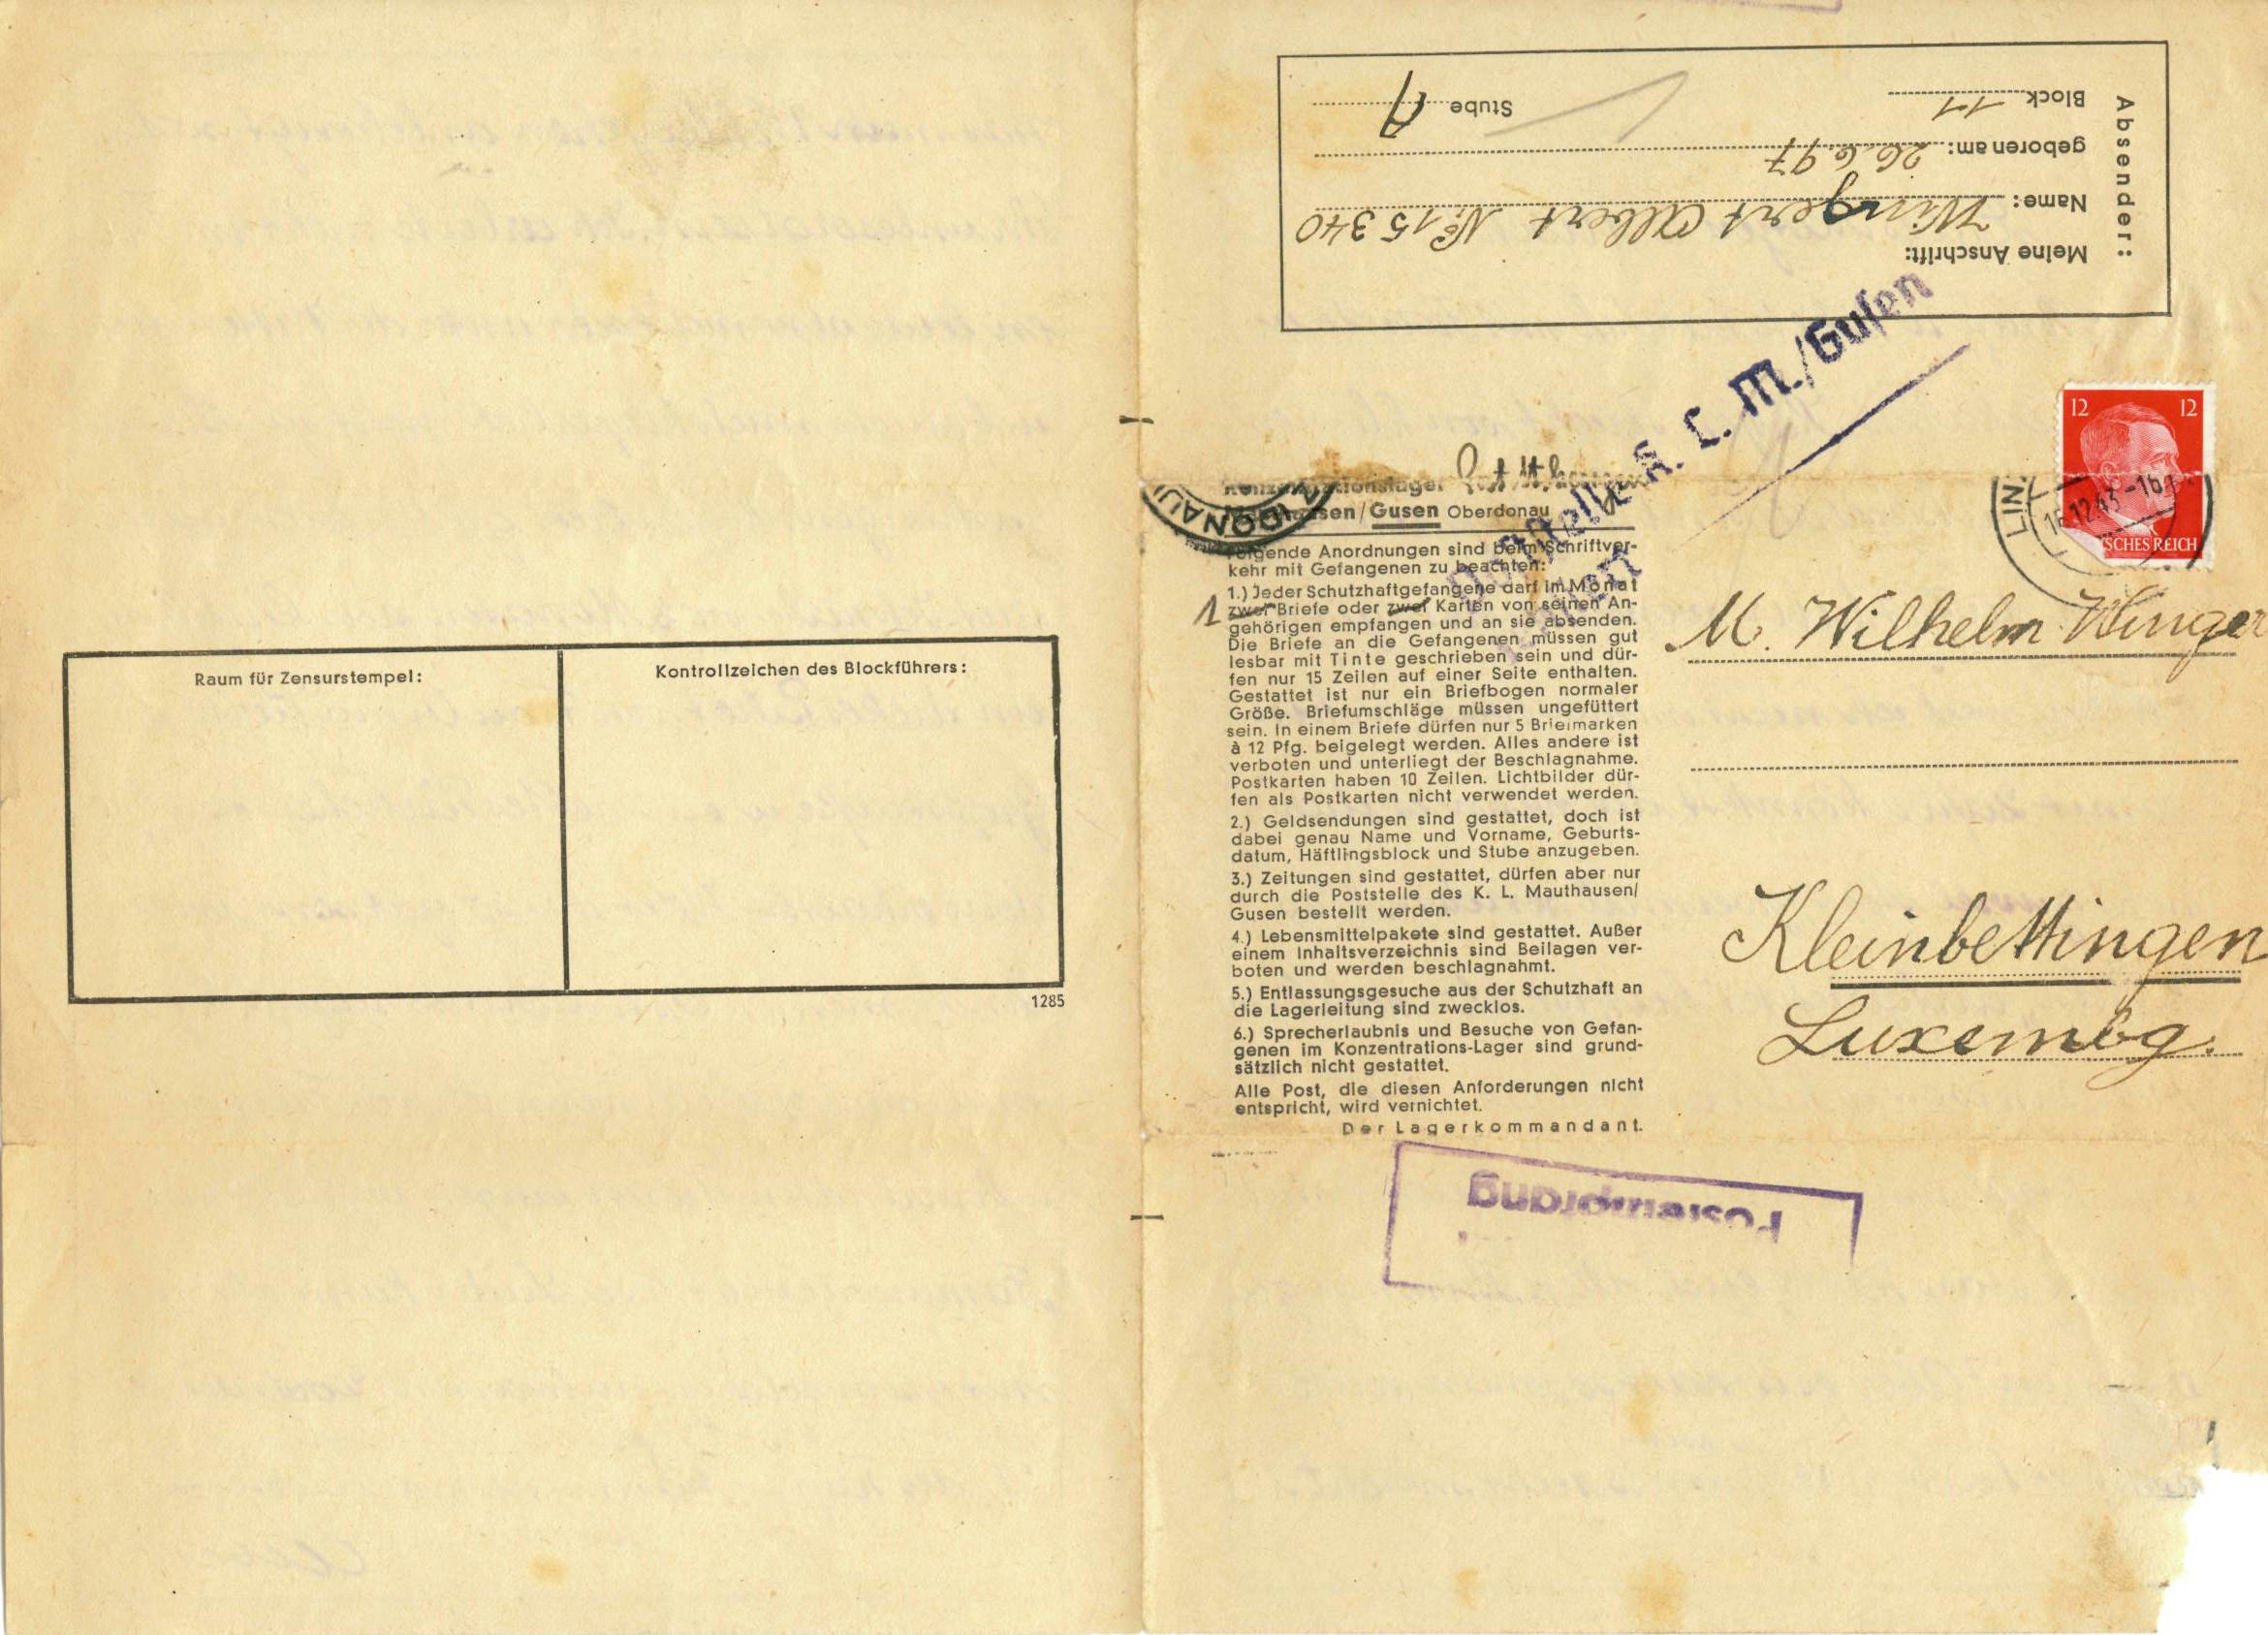 Raum für Zensurstempel:
Kontrollzeichen des Blockführers:
1285
Absender:
Meine Anschrift:
Name: Wingert Albert Nº 15340
geboren am: 26.6.97
Block 11 Stube A
K. L. M./Gusen
12 12
SCHES REICH
LIN
12.43-16
(DONAU)
Konzentrationslager
Gusen Oberdonau
Folgende Anordnungen sind beim Schriftver-
kehr mit Gefangenen zu beachten:
1.) Jeder Schutzhaftgefangene darf im Monat
1 zwei Briefe oder zwei Karten von seinen An-
gehörigen empfangen und an sie absenden.
Die Briefe an die Gefangenen müssen gut
lesbar mit Tinte geschrieben sein und dür-
fen nur 15 Zeilen auf einer Seite enthalten.
Gestattet ist nur ein Briefbogen normaler
Größe. Briefumschläge müssen ungefüttert
sein. In einem Briefe dürfen nur 5 Briefmarken
à 12 Pfg. beigelegt werden. Alles andere ist
verboten und unterliegt der Beschlagnahme.
Postkarten haben 10 Zeilen. Lichtbilder dür-
fen als Postkarten nicht verwendet werden.
2.) Geldsendungen sind gestattet, doch ist
dabei genau Name und Vorname, Geburts-
datum, Häftlingsblock und Stube anzugeben.
3.) Zeitungen sind gestattet, dürfen aber nur
durch die Poststelle des K. L. Mauthausen/
Gusen bestellt werden.
4.) Lebensmittelpakete sind gestattet. Außer
einem Inhaltsverzeichnis sind Beilagen ver-
boten und werden beschlagnahmt.
5.) Entlassungsgesuche aus der Schutzhaft an
die Lagerleitung sind zwecklos.
6.) Sprecherlaubnis und Besuche von Gefan-
genen im Konzentrations-Lager sind grund-
sätzlich nicht gestattet.
Alle Post, die diesen Anforderungen nicht
entspricht, wird vernichtet.
Der Lagerkommandant.
M. Wilhelm Winger
Kleinbettingen
Luxembg.
Postempfang